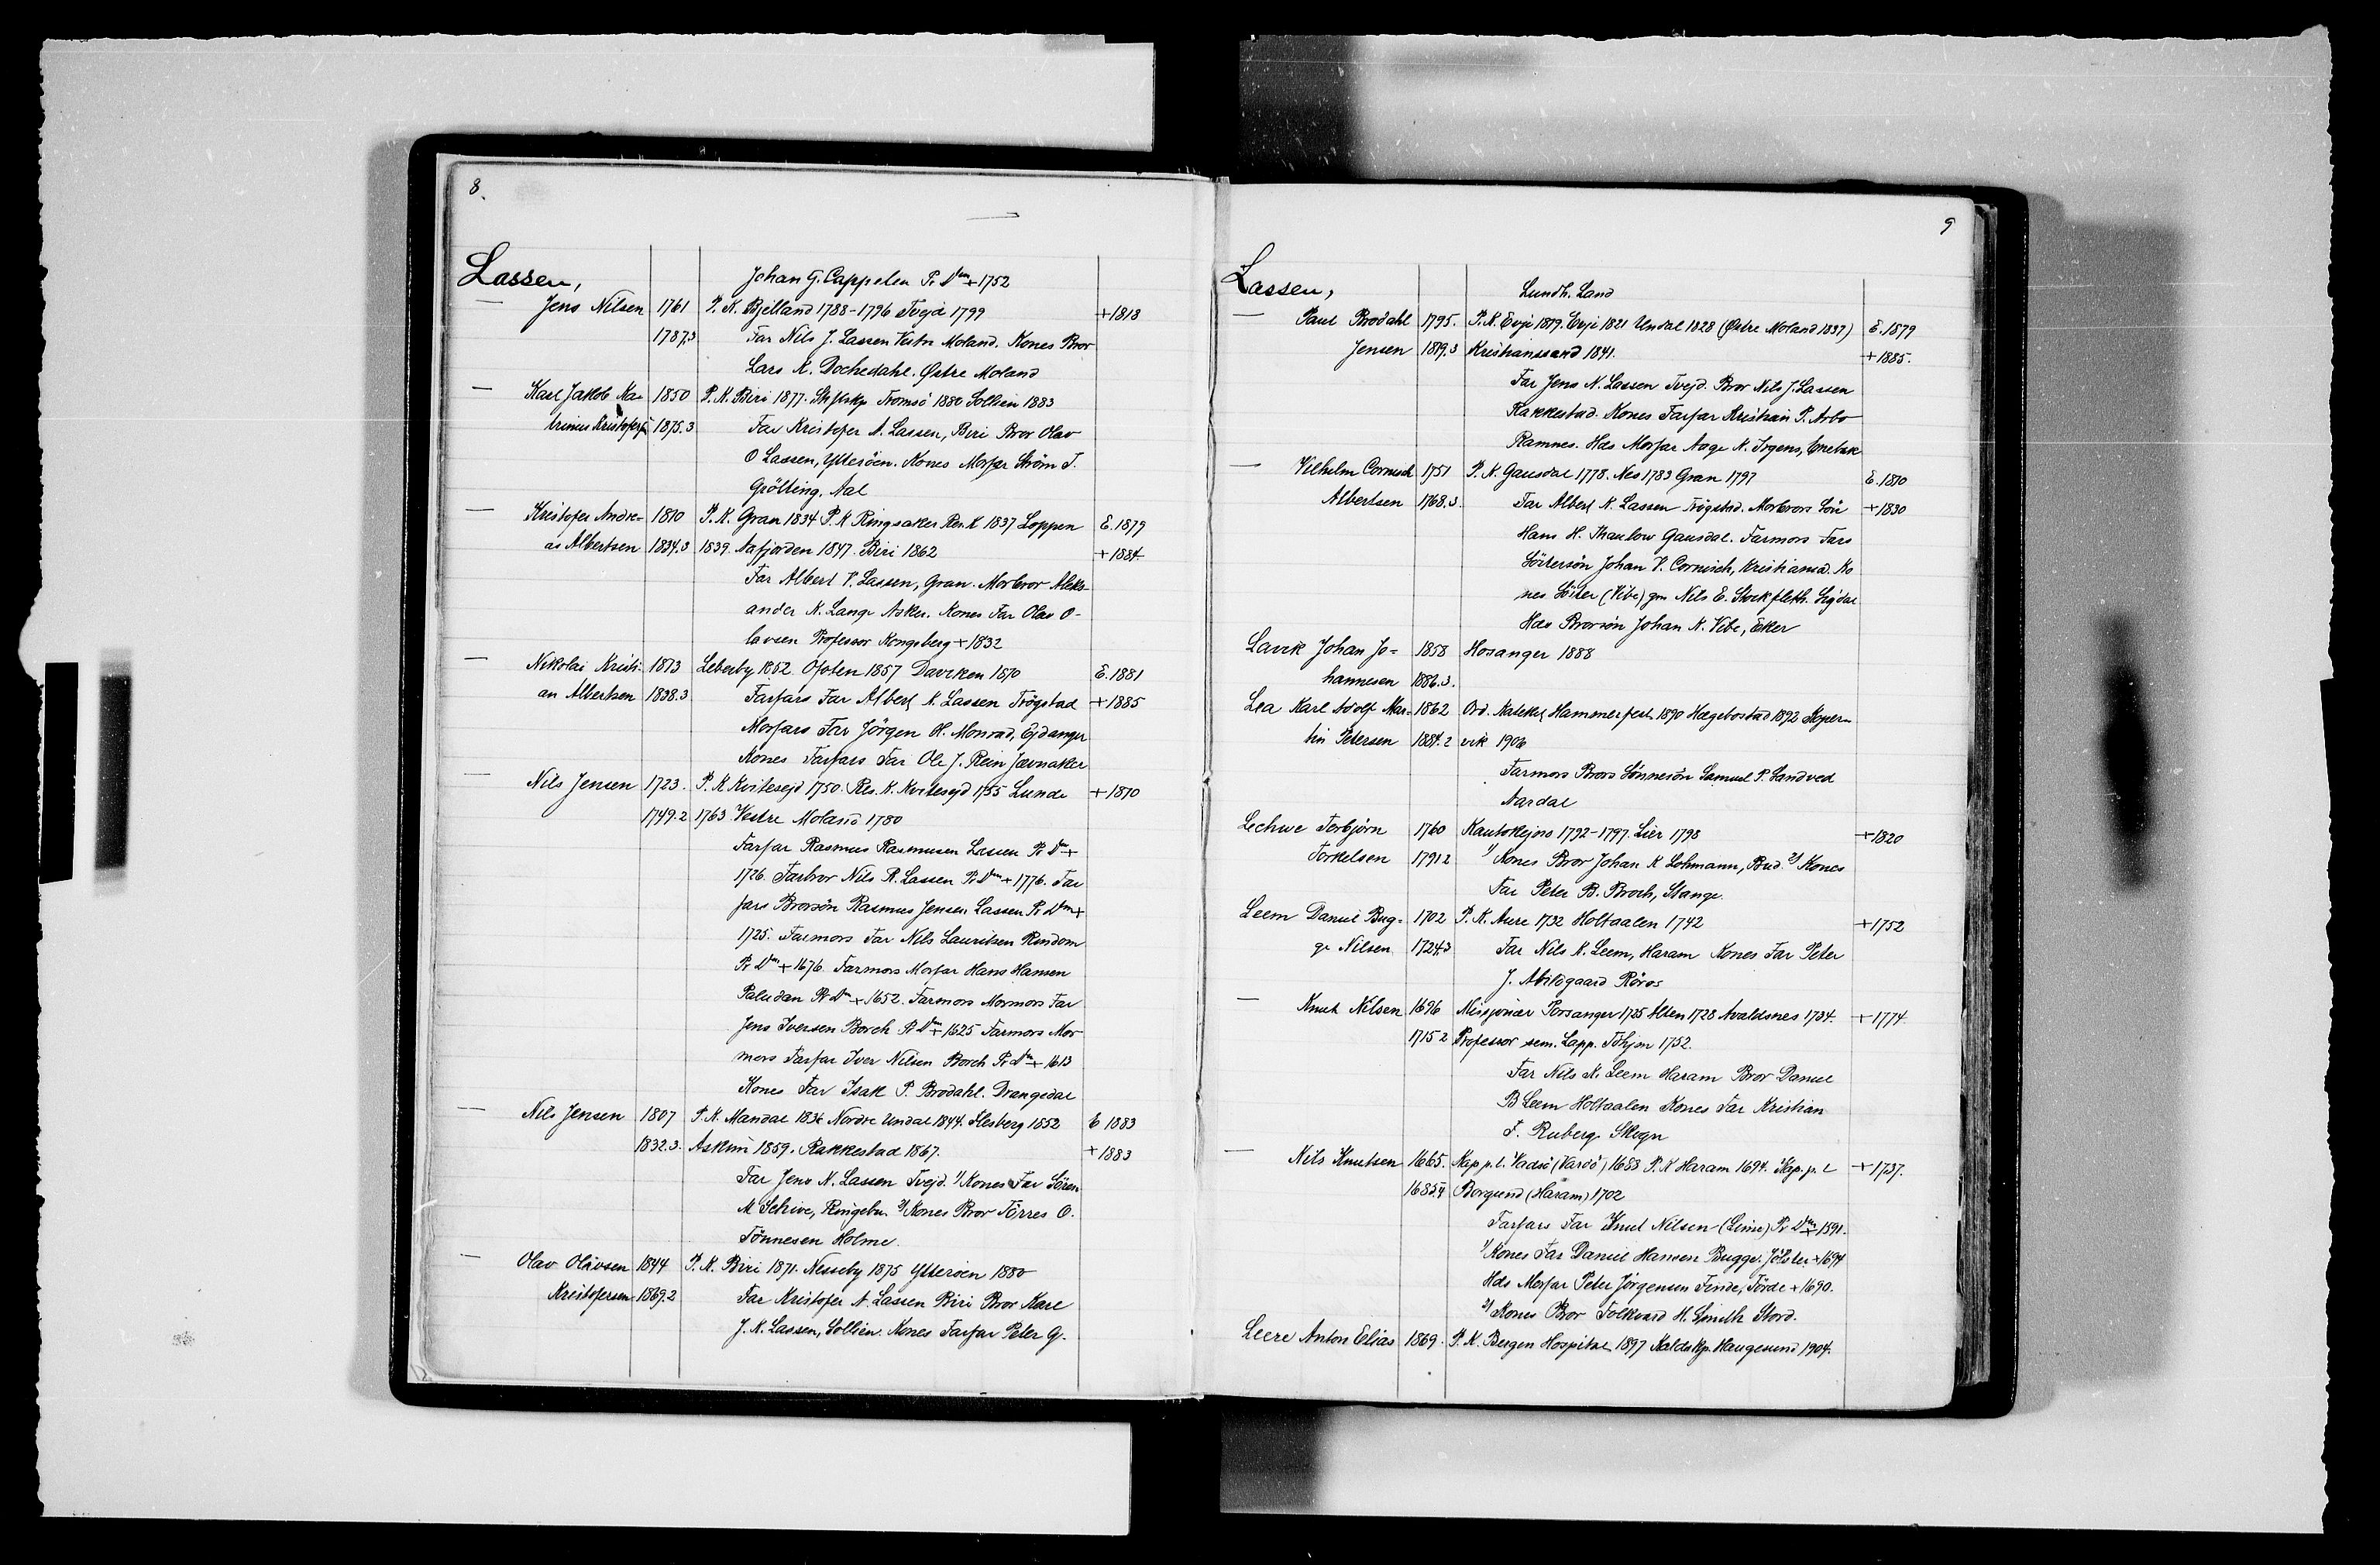 8.
Lassen,
Johan G. Cappelen Pr. Dm + 1752
— Jens Nilsen 1761 P. K. Bjelland 1788-1796 Tvejd 1799 +1818
1787.3 Far Nils J. Lassen Vestre Moland. Kones Bror
Lars K. Dochedahl. Østre Moland
— Karl Jakob Ka- 1850 P. K. Biri 1877. Stiftskp Tromsö 1880 Sollien 1883
trinus Kristofers. 1875.3 Far Kristofer A. Lassen, Biri Bror Olav
O Lassen, Ytteröen. Kones Morfar Ström T.
Grölting. Aal
— Kristofer Andre- 1810 P. K. Gran 1834 P. K Ringsaker Res. K 1837 Loppen E. 1879
as Albertsen 1834.3 1839. Aafjorden 1847. Biri 1862 +1884
Far Albert V. Lassen, Gran. Morbror Aleks-
ander K. Lange Asker. Kones Far Olav O-
lavsen Professor Kongsberg + 1832
— Nikolai Kristi- 1813 Lebesby 1852 Ofoten 1857 Daviken 1870 E. 1881
an Albertsen 1838.3 Farfars Far Albert K. Lassen Trögstad +1885
Morfars Far Jörgen H. Monrad, Ejdanger
Kones Farfars Far Ole J. Rein Jævnaker
— Nils Jensen 1723. P. K Kvitesejd 1750. Res. K. Kvitesejd 1755 Lunde +1810
1749.2 1763 Vestre Moland 1780
Farfar Rasmus Rasmusen Lassen Pr Dm +
1726. Farbror Nils R. Lassen Pr Dm + 1776. Far
fars Brorsön Rasmus Jensen Lassen Pr Dm +
1725. Farmors Far Nils Lauritsen Rindom
Pr Dm + 1676. Farmors Morfar Hans Hansen
Paludan Pr Dm + 1652. Farmors Mormors Far
Jens Iversen Borch Pr Dm + 1625 Farmors Mor
mors Farfar Iver Nilsen Borch Pr Dm + 1613
Kones Far Isak P. Brodahl. Drangedal
— Nils Jensen 1807 P. K. Mandal 1834 Nordre Undal 1844. Flesberg 1852 E 1883
1832.3. Askim 1859. Rakkestad 1867. +1883
Far Jens N. Lassen Tvejd. 1) Kones Far Sören
M Schive, Ringebu. 2) Kones Bror Törres O.
Tönnesen Holme.
— Olav Olavsen 1844 P. K. Biri 1871. Nesseby 1875 Ytteröen 1880
Kristofersen 1869.2 Far Kristofer A. Lassen Biri Bror Karl
J. K. Lassen, Sollien. Kones Farfar Peter G.
9
Lassen,
Lundh. Land
— Paul Brodahl 1795. P. K. Evje 1819. Evje 1821 Undal 1828 (Østre Moland 1837) E. 1879
Jensen 1819.3 Kristianssand 1841. +1885.
Far Jens N. Lassen Tvejd. Bror Nils J. Lassen
Rakkestad. Kones Farfar Kristian P. Arbo
Ramnes. Hds Morfar Aage K. Irgens, Enebak
— Vilhelm Cornisch 1751 P. K. Gausdal 1778. Nes 1783 Gran 1797 E. 1810
Albertsen 1768.3. Far Albert K. Lassen Trögstad. Morbrors Sön +1830
Hans H. Thaulow Gausdal. Farmors Fars
Söstersön Johan V. Cornisch, Kristiansd. Ko
nes Söster (Vibe) gm Nils E. Stockfleth. Sigdal
Hds Brorsön Johan K. Vibe, Eker
Lavik Johan Jo- 1858 Hosanger 1888
hannesen 1886.3.
Lea Karl Adolf Mar- 1862 Ord. Kateket Hammerfest 1890 Hægebostad 1892 Koper-
tin Petersen 1884.2 vik 1906
Farmors Brors Sönnesön Samuel P. Landved
Aardal
Lechwe Torbjörn 1760 Kautokejno 1792-1797. Lier 1798 +1820
Torkelsen 1791.2 1) Kones Bror Johan K Lohmann, Bud. 2) Kones
Far Peter B. Broch, Stange.
Leem Daniel Bug- 1702 P. K. Aure 1732 Holtaalen 1742 +1752
ge Nilsen 1724.3 Far Nils K. Leem, Haram Kones Far Peter
J. Abildgaard Röros
— Knut Nilsen 1696 Missjonær Porsanger 1725 Alten 1728 Avaldsnes 1734. +1774.
1715.2 Professor sem. Lapp. Tdhjem 1752.
Far Nils K. Leem Haram Bror Daniel
B Leem Holtaalen Kones Far Kristian
F. Ruberg Skogn
— Nils Knutsen 1665. Kap p. l. Vadsö (Vardö) 1688 P. K Haram 1694. Kap. p. l +1737.
1685.4 Borgund (Haram) 1702
Farfars Far Knut Nilsen (Leim) Pr Dm + 1591.
1) Kones Far Daniel Hansen Bugge. Jölster +1694
Hds Morfar Peter Jörgensen Finde, Förde +1690.
2) Kones Bror Folkvard H. Smith Stord.
Leere Anton Elias 1869. P. K. Bergen Hospital 1897 Kaldskp. Haugesund 1904.